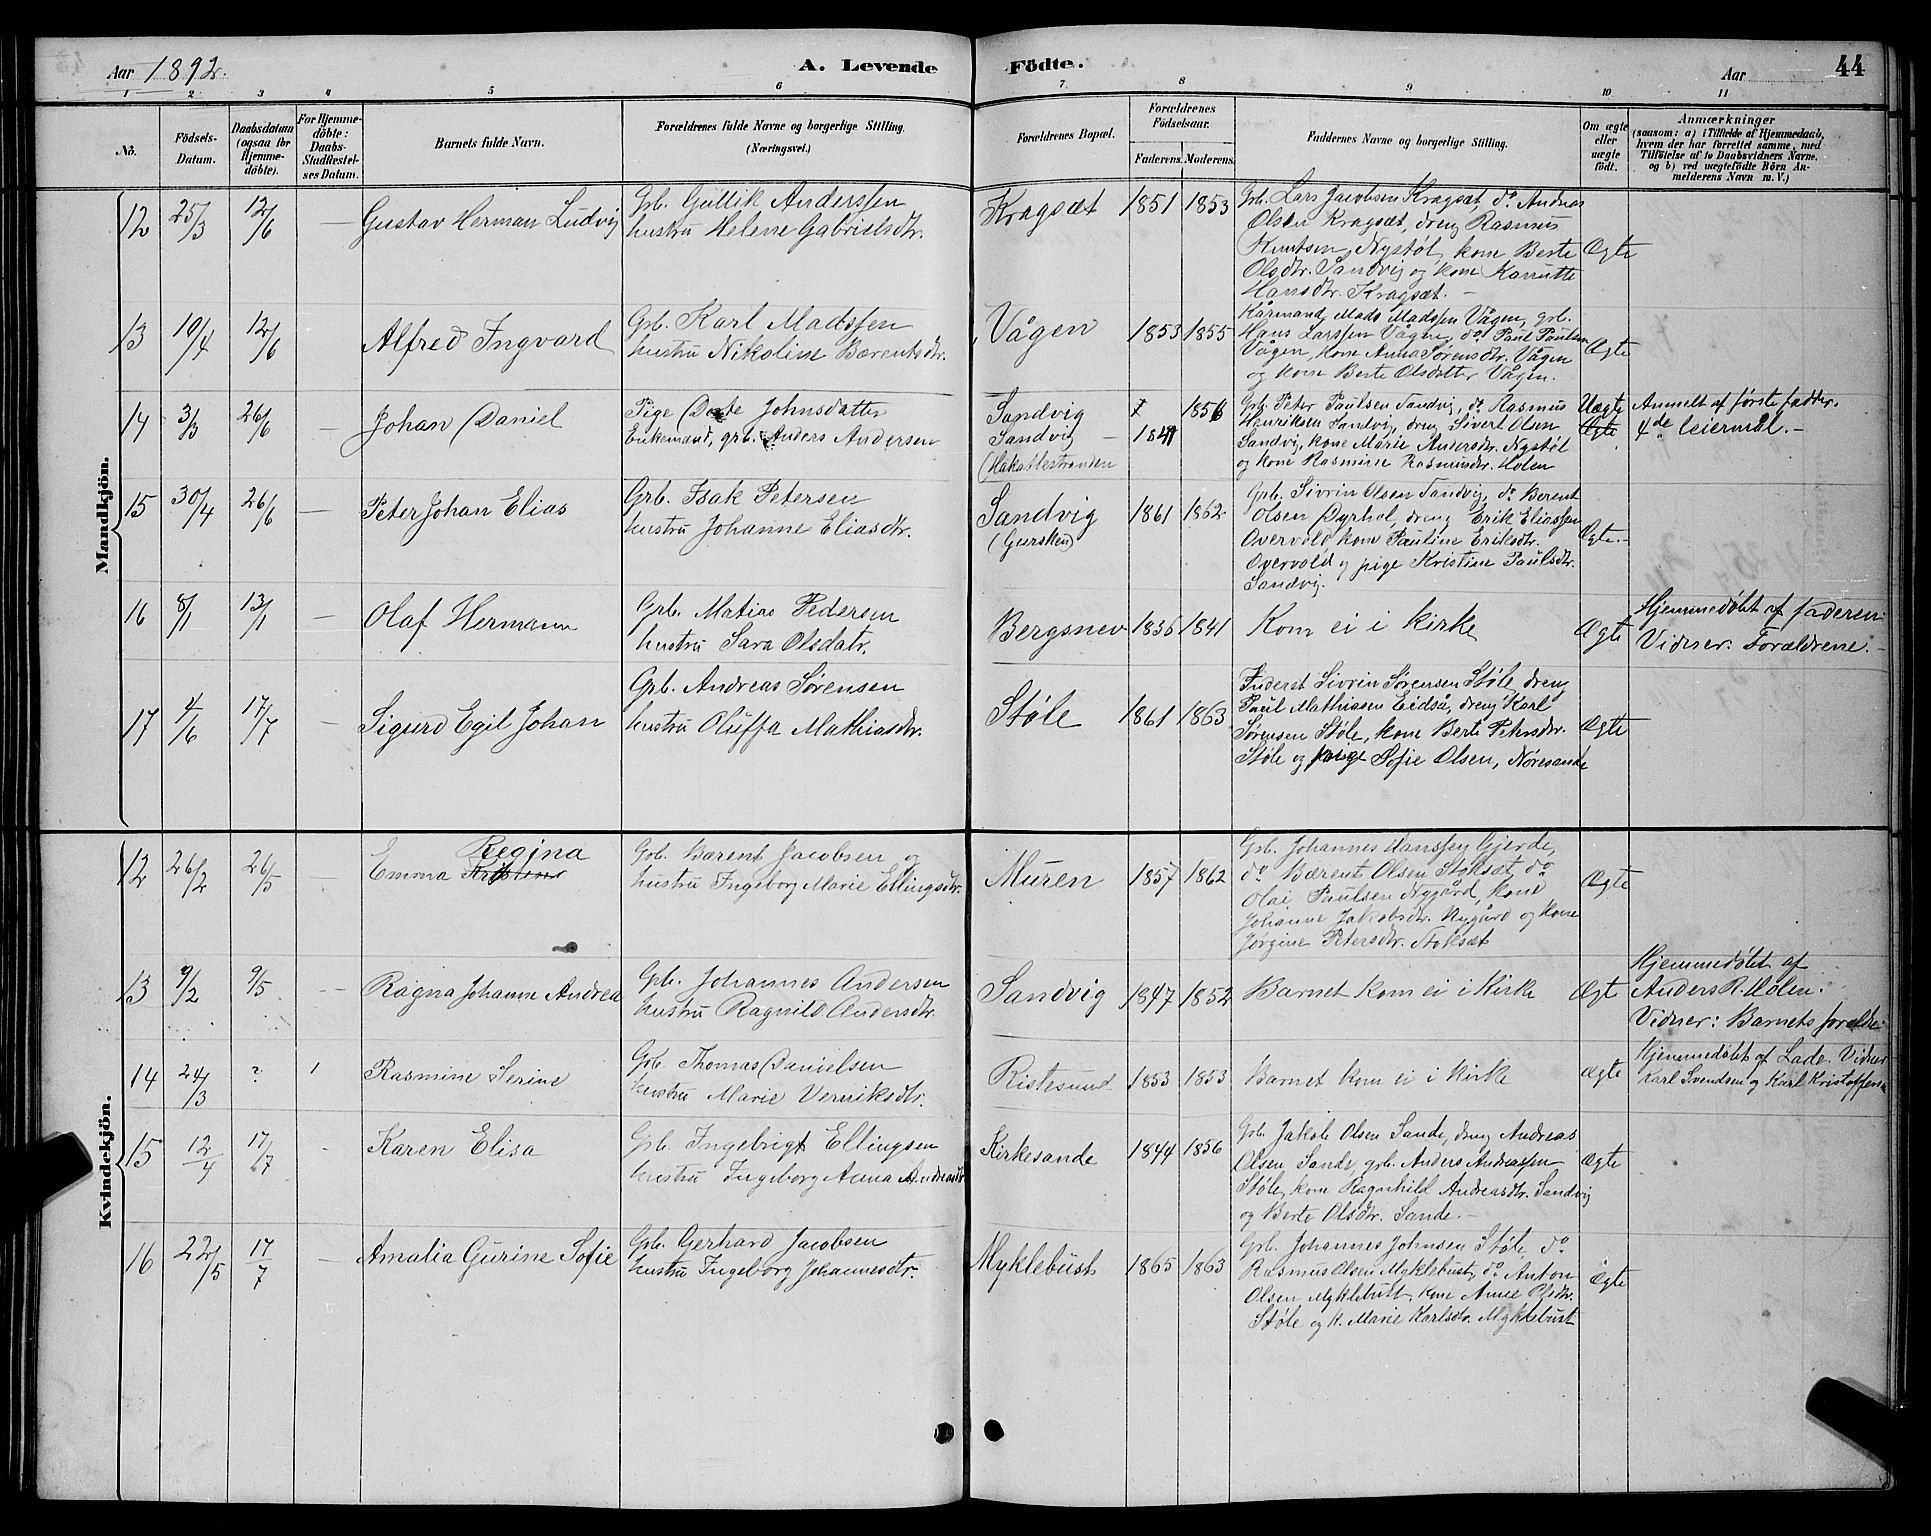 Aar 1892.
A. Levende Födte.
Aar 44
1 2 3 4 5 6 7. 8 9 10 11
No.
Födsels-Datum.
Daabsdatum (ogsaa for Hjemmedöbte).
For Hjemmedöbte: Daabs-Stadfestelses Datum.
Barnets fulde Navn.
Forældrenes fulde Navne og borgerlige Stilling. (Næringsvei.)
Forældrenes Bopæl.
Forældrenes Födselsaar.
Faderens. Moderens.
Faddernes Navne og borgerlige Stilling.
Om ægte eller uægte födt.
Anmærkninger
(saasom: a) i Tilfælde af Hjemmedaab,
hvem der har forrettet samme, med
Tilföielse af to Daabsvidners Navne.
og b) ved uægtefödte Börn An-
melderens Navn m. V.)
Mandkjön.
12 25/3 12/6 — Gustav Herman Ludvig
Grb. Gullik Anderssen
hustru Helene Gabrielsdtr.
Kragsæt 1851 1853
Grb. Lars Jacobsen Kragsæt, do Andreas
Olsen Kragsæt, dreng Rasmus
Knutsen, Nystøl, kone Berte
Olsdtr. Sandvig og kone
Hansdtr. Kragsæt. —
Ægte
13 10/4 12/6 Alfred Ingvard
Grb. Karl Madssen
hustru Nikoline Bærentsdtr.
Vågen 1853 1855
Kårmand Mads Madssen Vågen, grb.
Hans Larssen Vågen, do Paul Paulsen
Vågen, kone Anna Sørensdtr. Vågen
og kone Berte Olsdatter Vågen.
Ægte
14 3/3 26/6 — Johan Daniel
Pige Johnsdatter
Enkemand, grb. Anders Andersen
Sandvig 1856
Sandvig — 1841
(Hakallestranden
Grb. Peter Paulsen Sandvig, do Rasmus
Henriksen Sandvig, dreng Sivert Olsen
Sandvig, kone Marie Andersdtr. Nystöl
og kone Rasmine Rasmusdtr. Holen
Uægte
Ægte
Anmelt af første fadder.
4de leiermål. —
15 30/4 26/6 — Peter Johan Elias
Grb. Isak Petersen
hustru Johanne Eliasdtr.
Sandvig 1861 1862
(Gursken)
Grb. Sivrin Olsen Sandvig, do Berent
Olsen Dyrhol, dreng Erik Eliassen
Overvold, kone Pauline Eriksdtr.
Overvold og pige Kristine Paulsdtr.
Sandvig.
Ægte. —
16 8/1 13/1 — Olaf Hermann
Grb. Matias Pedersen
hustru Sara Olsdatr.
Bergsnev 1836 1841 Kom ei i Kirke Ægte
Hjemmedøbt af faderen.
Vidner: Forældrene. —
17 4/6 17/7 — Sigurd Egil Johan
Grb. Andreas Sørensen
hustru Oluffa Mathiasdtr.
Støle 1861 1863
Inderst Sivrin Sørensen Støle, dreng
Paul Mathiasen Eidså, dreng Karl
Sørensen Støle, kone Berte Petersdtr.
Støle og pige Sofie Olsen, Nöresande
Ægte
Kvindekjön.
12 26/2 26/5 — Regina
Emma
Grb. Bærent Jacobsen og
hustru Ingeborg Marie Ellingsdtr.
Muren 1857 1862
Grb. Johannes Hanssen Gjerde,
do Bærent Olsen Stoksæt, do
Olai Paulsen Nygård, kone
Johanne Jakobsdtr. Nygård og kone
Jørgine Petersdtr. Stoksæt
Ægte
13 9/2 9/5 — Ragna Johanne Andrea
Grb. Johannes Andersen
hustru Ragnild Andersdtr.
Sandvig 1847 1852 Barnet kom ei i Kirke Ægte
Hjemmedøbt af
Anders R. Holen.
Vidner: Barnets forældre.
14 24/3 ? Rasmine Serine
Grb. Thomas Danielsen
hustru Marie Verniksdtr.
Ristesund 1853 1853 Barnet kom ei i Kirke Ægte
Hjemmedøbt af Lade. Vidner
Karl Svendsen og Karl Kristoffersen
15 12/4 17/7 - Karen Elisa
Grb. Ingebrigt Ellingsen
hustru Ingeborg Anna Andreasdtr
Kirkesande 1844 1856
Grb. Jakob Olsen Sande, dreng Andreas
Olsen Sande, grb. Anders Andreassen
Støle, kone Ragnhild Andreasdtr. Sandvig
og Berte Olsdtr. Sande. —
Ægte
16 22/5 17/7 — Amalia Gurine Sofie
Grb. Gerhard Jacobsen
hustru Ingeborg Johannesdtr.
Myklebust 1865 1863
Grb. Johannes Johnsen Støle, do
Rasmus Olsen Myklebust, do Anton
Olsen Myklebust, kone Anne Olsdtr.
Støle og k. Marie Karlsdtr. Myklebust
Ægte